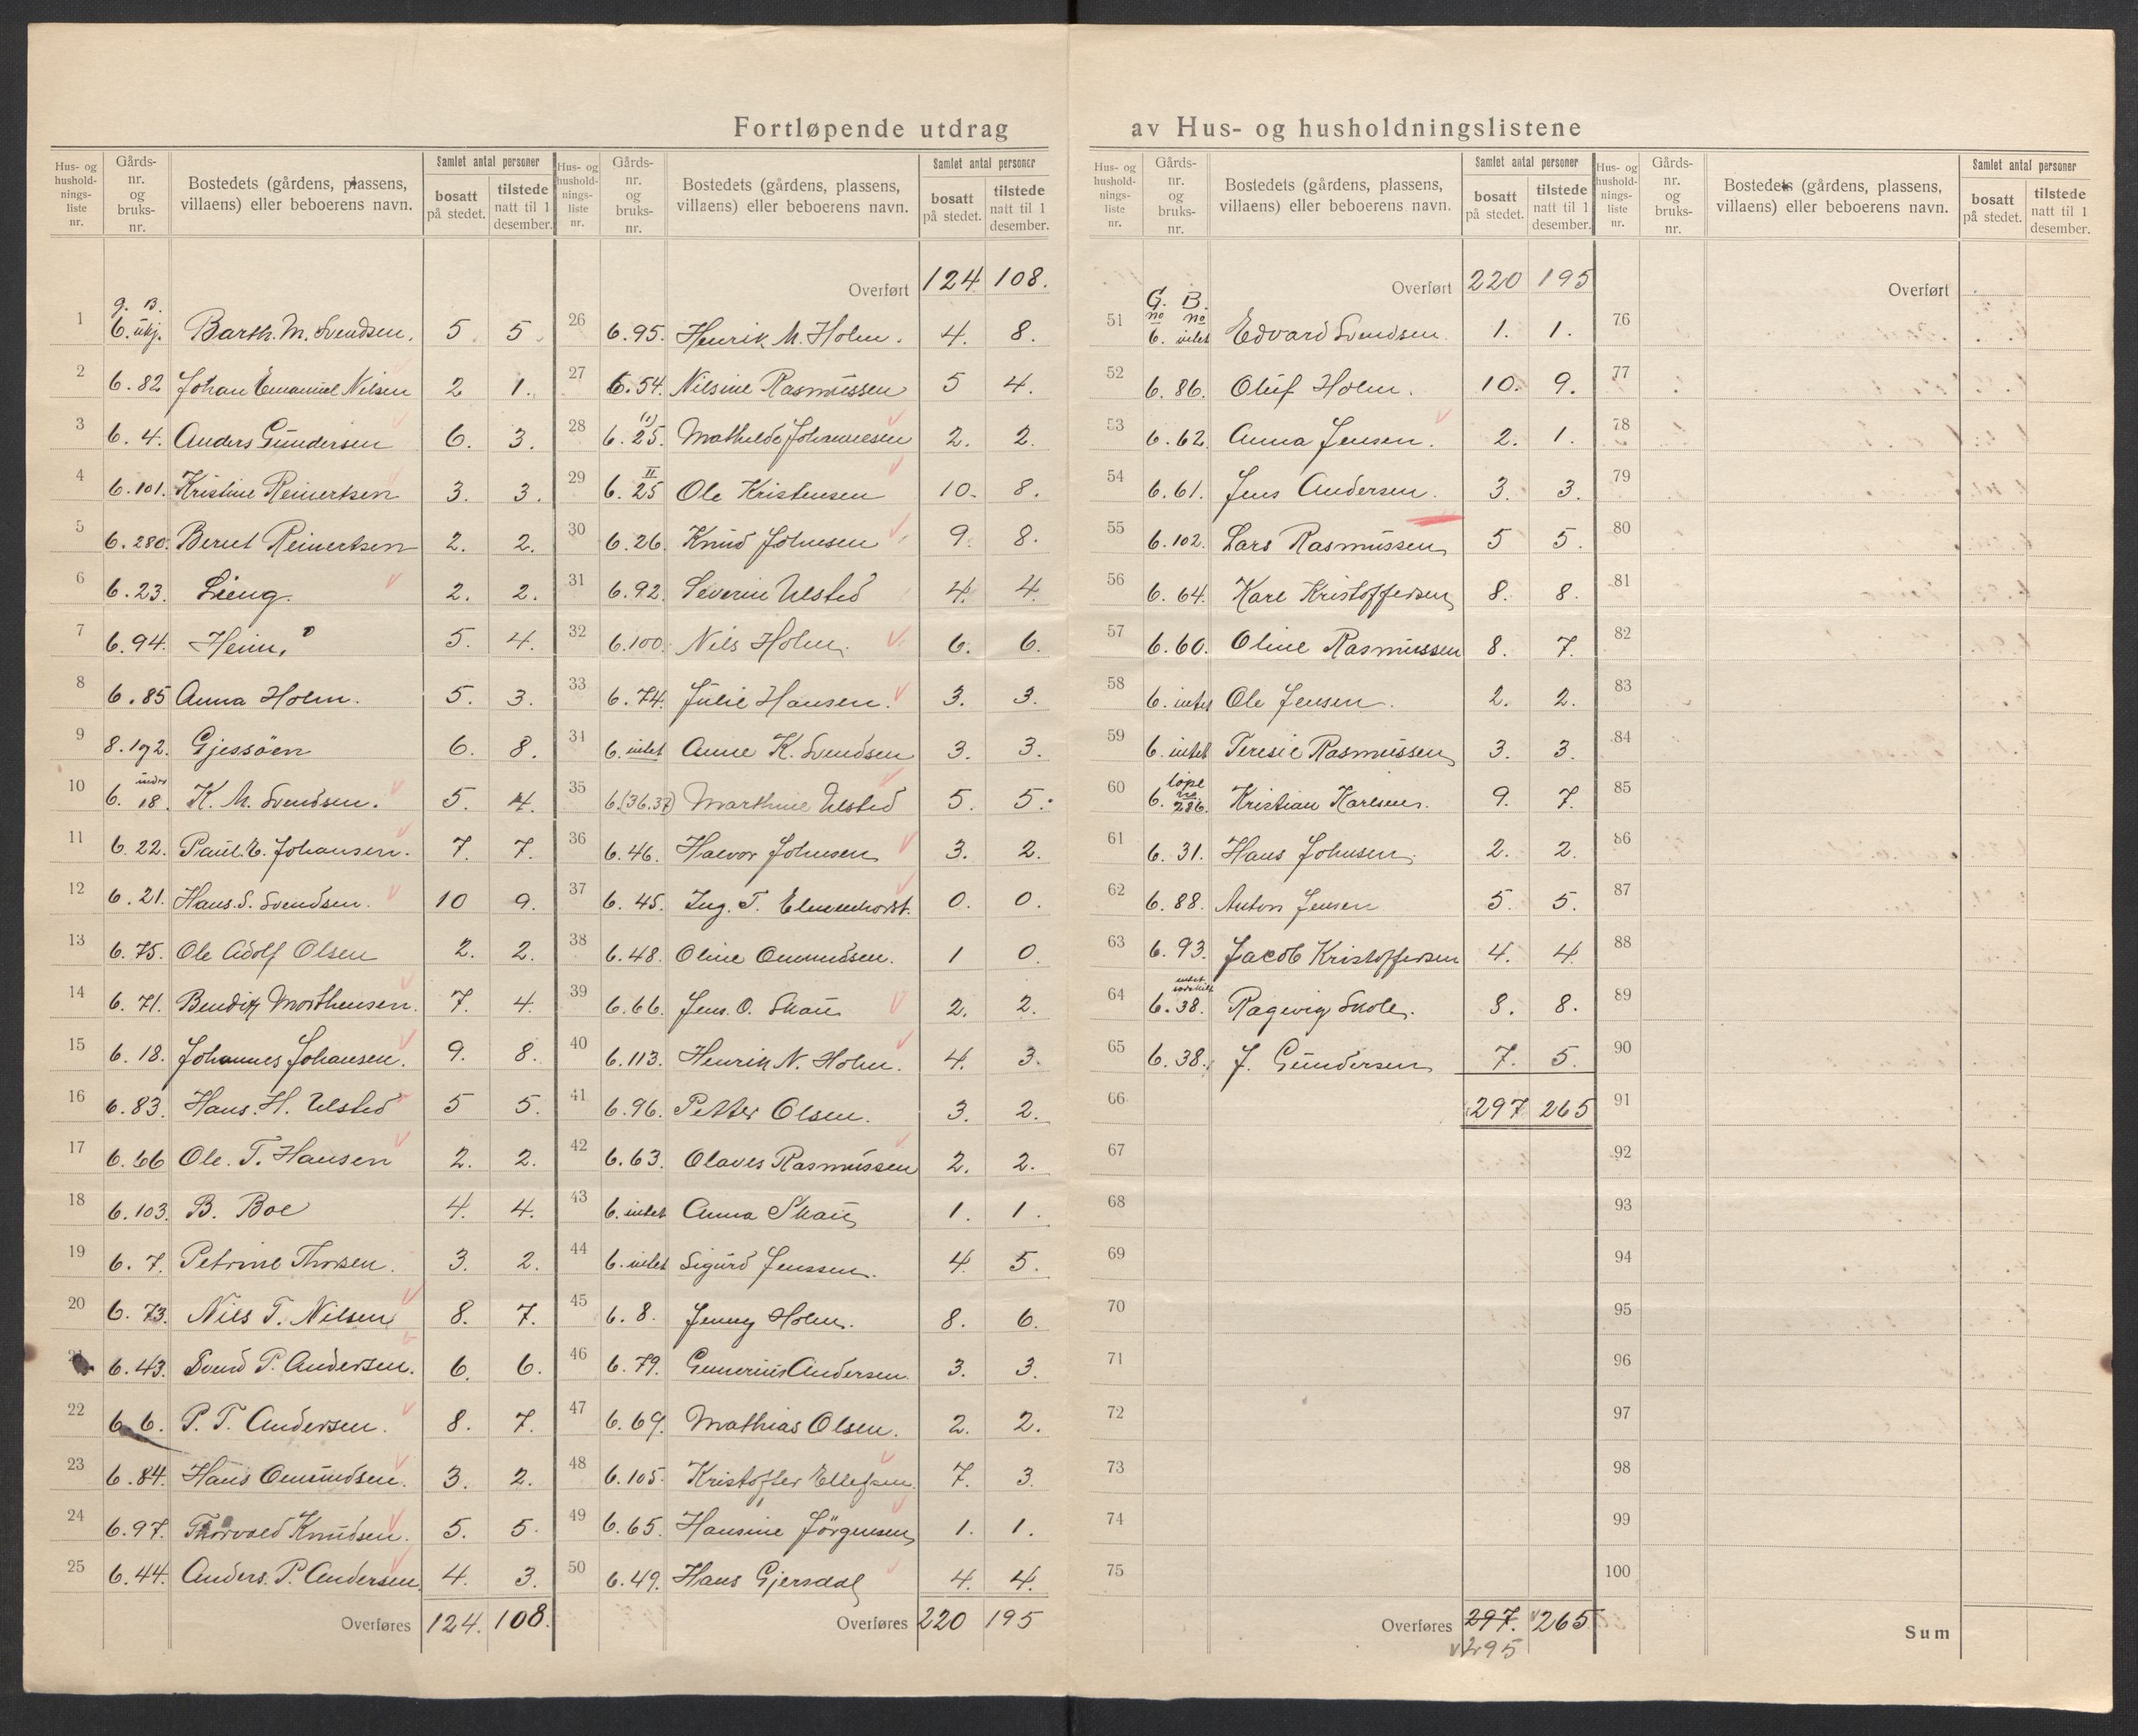 Fortløpende utdrag av Hus- og husholdningslistene
Hus- og husholdnings-liste nr. | Gårds-nr. og bruks-nr. | Bostedets (gårdens, plassens, villaens) eller beboerens navn. | Samlet antal personer bosatt på stedet. | tilstede natt til 1 desember.
g. B.
1 6. ukj. Barth. M. Svendsen. 5 5.
2 6.82 Johan Emanuel Nilsen 2 1.
3 6.4. Anders Gundersen 6. 3.
4 6.101. Kristine Reinertsen 3. 3.
5 6.280. Berut Reinertsen 2. 2.
6 6.23. Lieng. 2. 2.
7 6.94. Heim. 5. 4.
8 6.85 Anna Holm. 5. 3.
9 8.1og2. Gjessöen 6. 8.
10 6. under 18. K. M. Svendsen. 5. 4.
11 6.22. Paul. E. Johansen. 7. 7.
12 6.21. Hans. S. Svendsen. 10 9.
13 6.75. Ole Adolf Olsen 2. 2.
14 6.71. Bendix Morthensen. 7. 4.
15 6.18. Johannes Johansen. 9. 8.
16 6.83. Hans. H. Ulsted 5 5.
17 6.66 Ole. T. Hansen 2. 2.
18 6.103. B. Boe 4. 4.
19 6.7. Petrine Thorsen. 3. 2.
20 6.73. Nils T. Nilsen 8. 7.
21 6.43. Svend P. Andersen. 6. 6.
22 6 6. P. T. Andersen. 8. 7.
23 6.84. Hans Omundsen. 3. 2.
24 6.97. Thorvald Knudsen. 5. 5.
25 6.44. Anders. P. Andersen. 4. 3.
Overføres 124. 108.
Hus- og husholdnings-liste nr. | Gårds-nr. og bruks-nr. | Bostedets (gårdens, plassens, villaens) eller beboerens navn. | Samlet antal personer bosatt på stedet. | tilstede natt til 1 desember.
Overført 124 108.
26 6.95. Henrik M. Holm. 4. 8.
27 6.54. Nilsine Rasmussen 5 4.
28 6. (1) 25. Mathilde Johannesen 2. 2.
29 6. II 25 Ole Kristensen 10. 8.
30 6.26. Knud Johnsen 9. 8.
31 6.92. Severin Ulsted 4. 4.
32 6.100. Nils Holm. 6. 6.
33 6.74. Julie Hansen. 3. 3.
34 6. intet Anne K. Svendsen 3. 3.
35 6.(36.37) Marthine Ulsted 5. 5.
36 6.46. Halvor Johnsen 3. 2.
37 6.45. Ing. T. Elmenhorst. 0. 0.
38 6.48. Oline Omundsen. 1 0.
39 6.66. Jens. O. Skau 2. 2.
40 6.113. Henrik N. Holm. 4. 3.
41 6.96. Petter Olsen. 3. 2.
42 6.63. Olaves Rasmussen 2. 2.
43 6. intet Anna Skau 1. 1.
44 6. intet Sigurd Jenssen. 4. 5.
45 6.8. Jenny Holm. 8. 6.
46 6.79. Gunerius Andersen. 3. 3.
47 6.69. Mathias Olsen. 2. 2.
48 6.105. Kristoffer Ellefsen. 7. 3.
49 6.65. Hansine Jörgensen 1. 1.
50 6.49. Hans Gjersdal 4. 4.
Overføres 220 195
Hus- og husholdnings-liste nr. | Gårds-nr. og bruks-nr. | Bostedets (gårdens, plassens, villaens) eller beboerens navn. | Samlet antal personer bosatt på stedet. | tilstede natt til 1 desember.
Overført 220 195
G. no B. no
51 6. intet Edvard Svendsen. 1. 1.
52 6.86. Oluf Holm. 10. 9.
53 6.62. Anna Jensen. 2. 1.
54 6.61. Jens Andersen. 3. 3.
55 6.102. Lars Rasmussen 5 5.
56 6.64. Karl Kristoffersen 8. 8.
57 6.60. Oline Rasmussen 8. 7.
58 6. intet Ole Jensen. 2. 2.
59 6. intet Teresie Rasmussen 3. 3.
60 6. löpe no. 286. Kristian Karlsen. 9. 7.
61 6.31. Hans Johnsen. 2. 2.
62 6.88. Anton Jensen 5. 5.
63 6.93. Jacob Kristoffersen 4. 4.
64 6.38. Ragevig Skole. 8. 8.
65 6.38. J. Gundersen 7. 5.
66 297 265
67
68
69
70
71
72
73
74
75
Overføres 297. 265
295
Hus- og husholdnings-liste nr. | Gårds-nr. og bruks-nr. | Bostedets (gårdens, plassens, villaens) eller beboerens navn. | Samlet antal personer bosatt på stedet. | tilstede natt til 1 desember.
Overført
76
77
78
79
80
81
82
83
84
85
86
87
88
89
90
91
92
93
94
95
96
97
98
99
100
Sum